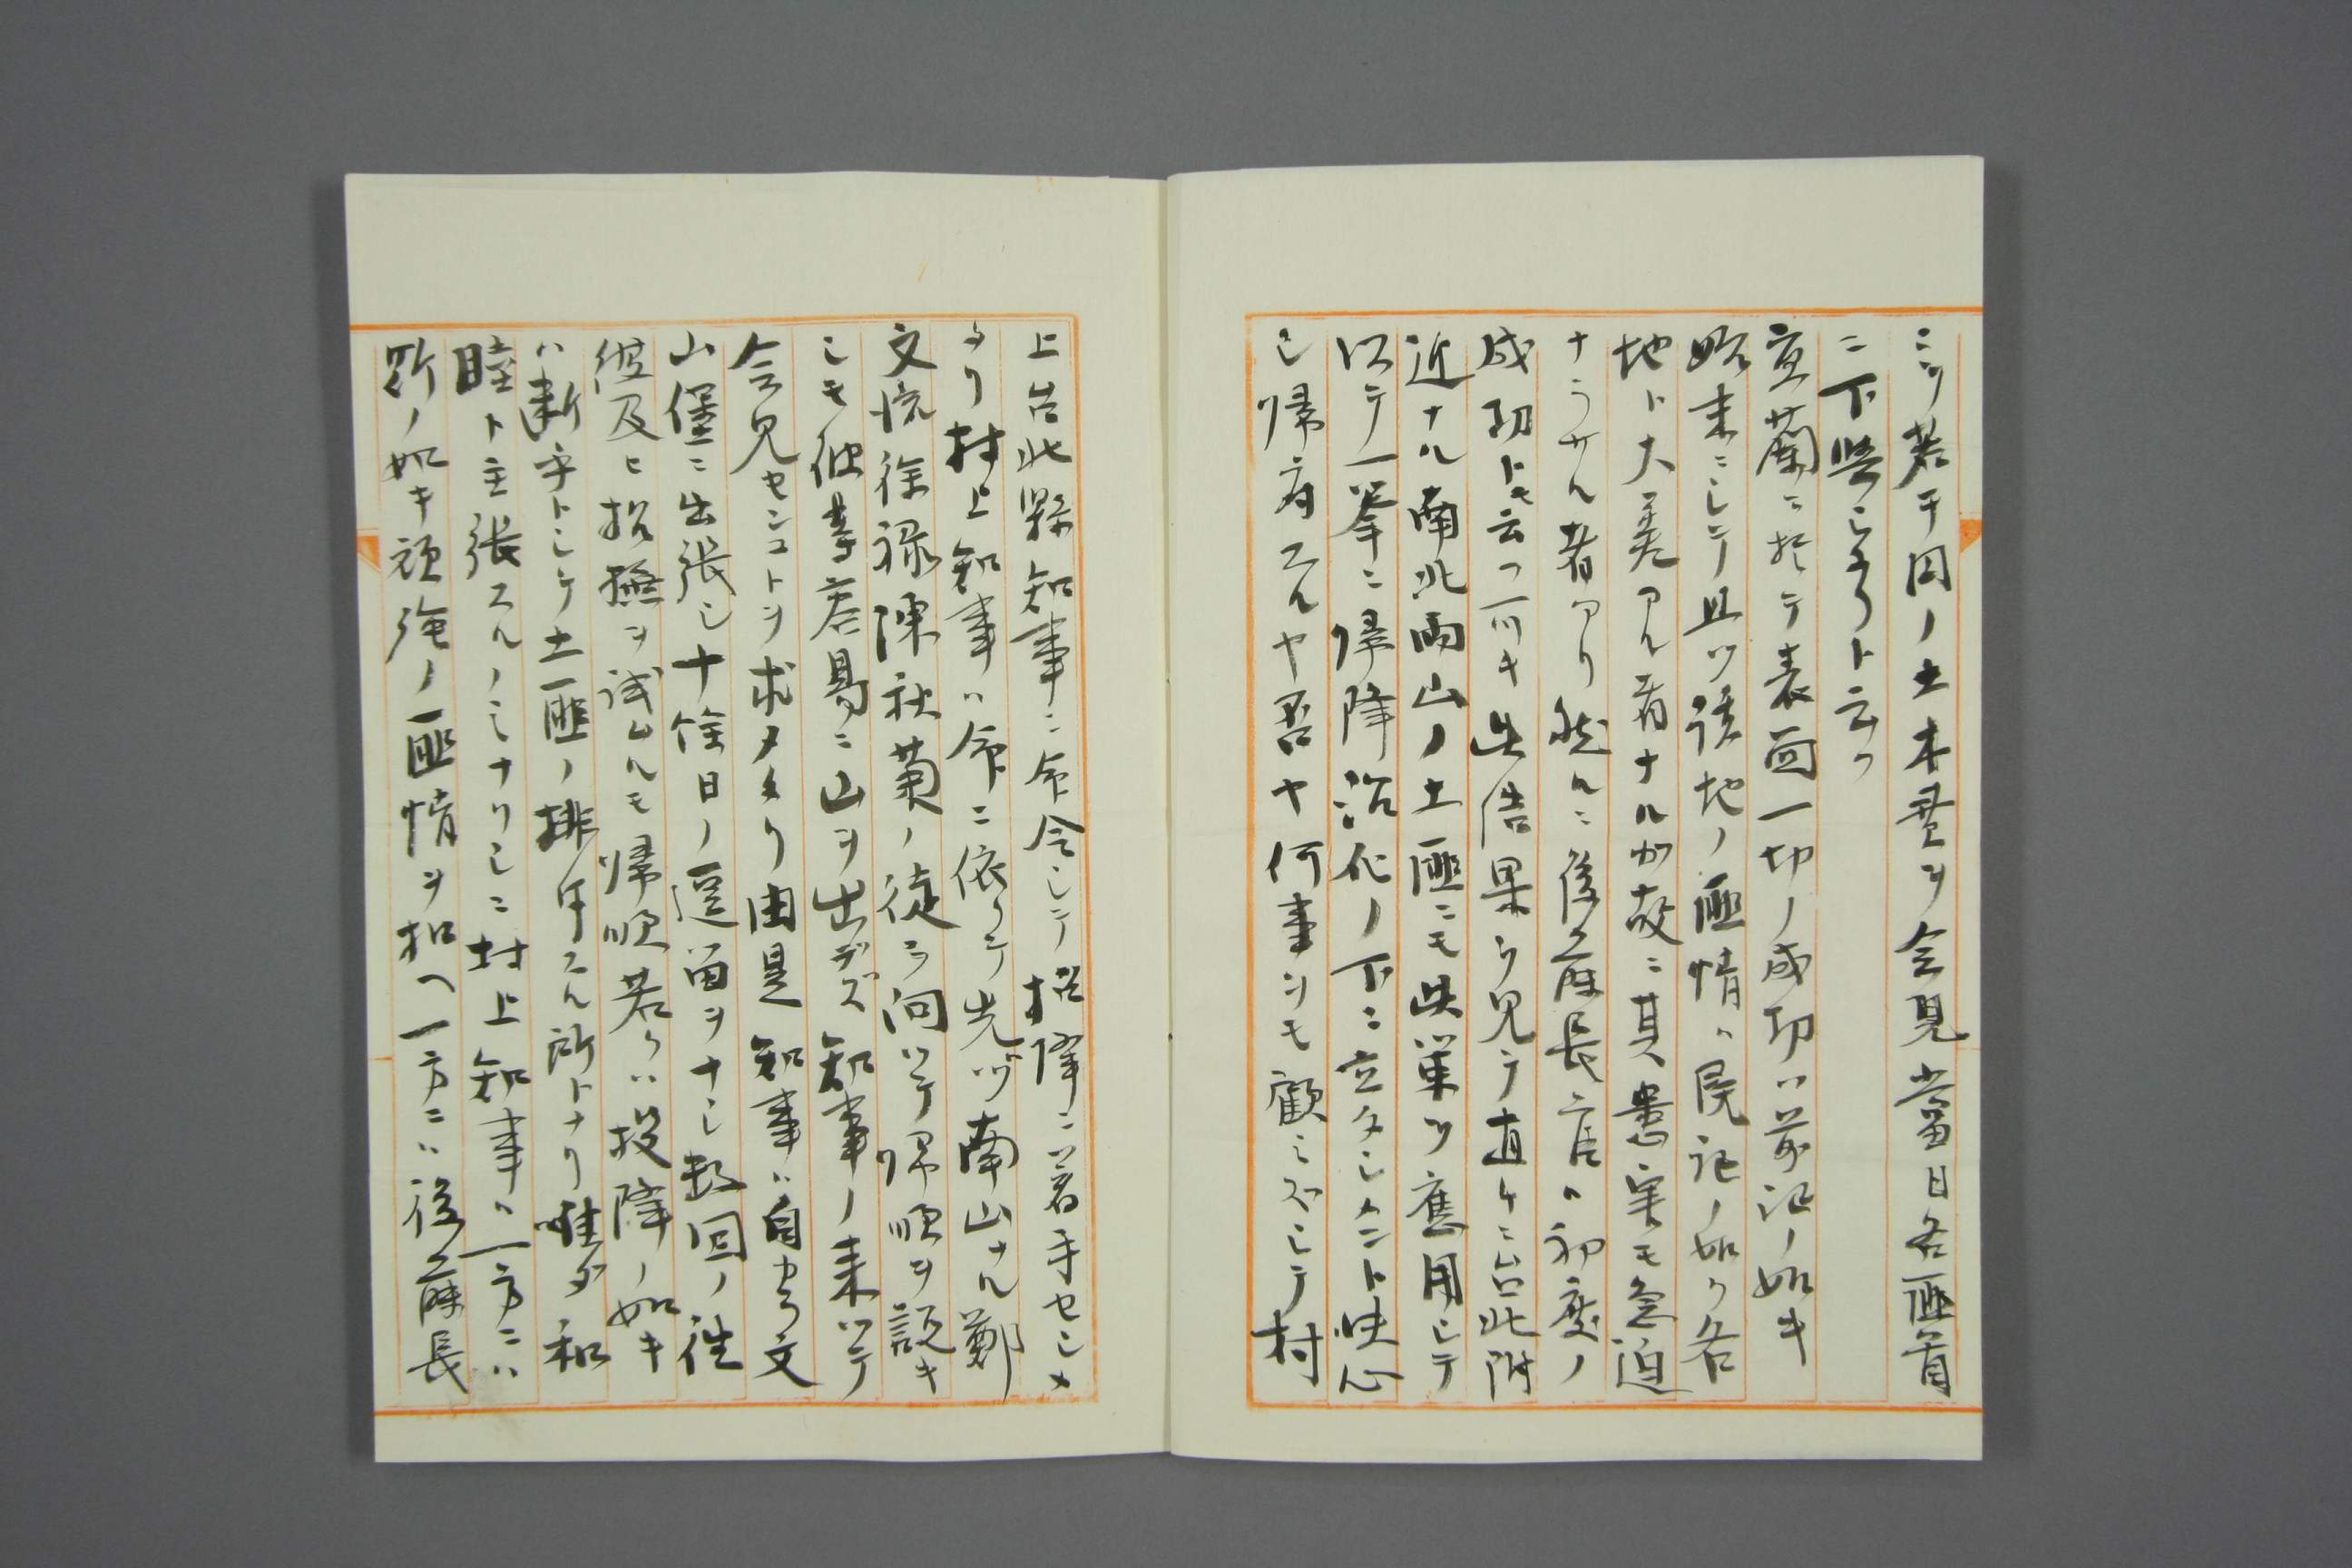 ミツ若干円ノ土木費ヲ会見當日各匪首
ニ下與シタリト云フ
宜蘭ニ於テ表面一切ノ成功ハ前記ノ如キ
始末ニシテ且ツ該地ノ匪情ハ既記ノ如ク各
地ト大差アル者ナルカ故ニ其患害モ急迫
ナラサル者アリ然ルニ後藤長官ハ初度ノ
成功トモ云フ可キ此結果ヲ見テ直ケニ台北附
近ナル南北両山ノ土匪ニモ此策ヲ應用シテ
以テ一挙ニ帰降治化ノ下ニ立タシメント決心
シ帰府スルヤ否ヤ何事ヲモ顧ミズシテ村
上台北縣知事ニ命令シテ招降ニ着手セシメ
タリ村上知事ハ命ニ依リテ先ヅ南山ナル鄭
文流徐禄陳秋菊ノ徒ヲ向ツテ帰順ヲ説キ
シモ彼等容易ニ山ヲ出デズ知事ノ来ツテ
会見センコトヲ求メタリ由是知事ハ自カラ文
山堡ニ出張シ十餘日ノ逗留ヲナシ数回ノ往
復及ヒ招撫ヲ試ムルモ帰順若クハ投降ノ如キ
ハ断乎トシテ土匪ノ排斥スル所トナリ唯ダ和
睦ト主張スルノミナリシニ村上知事ハ一方ニハ
斯ノ如キ頑強ノ匪情ヲ扣ヘ一方ニハ後藤長